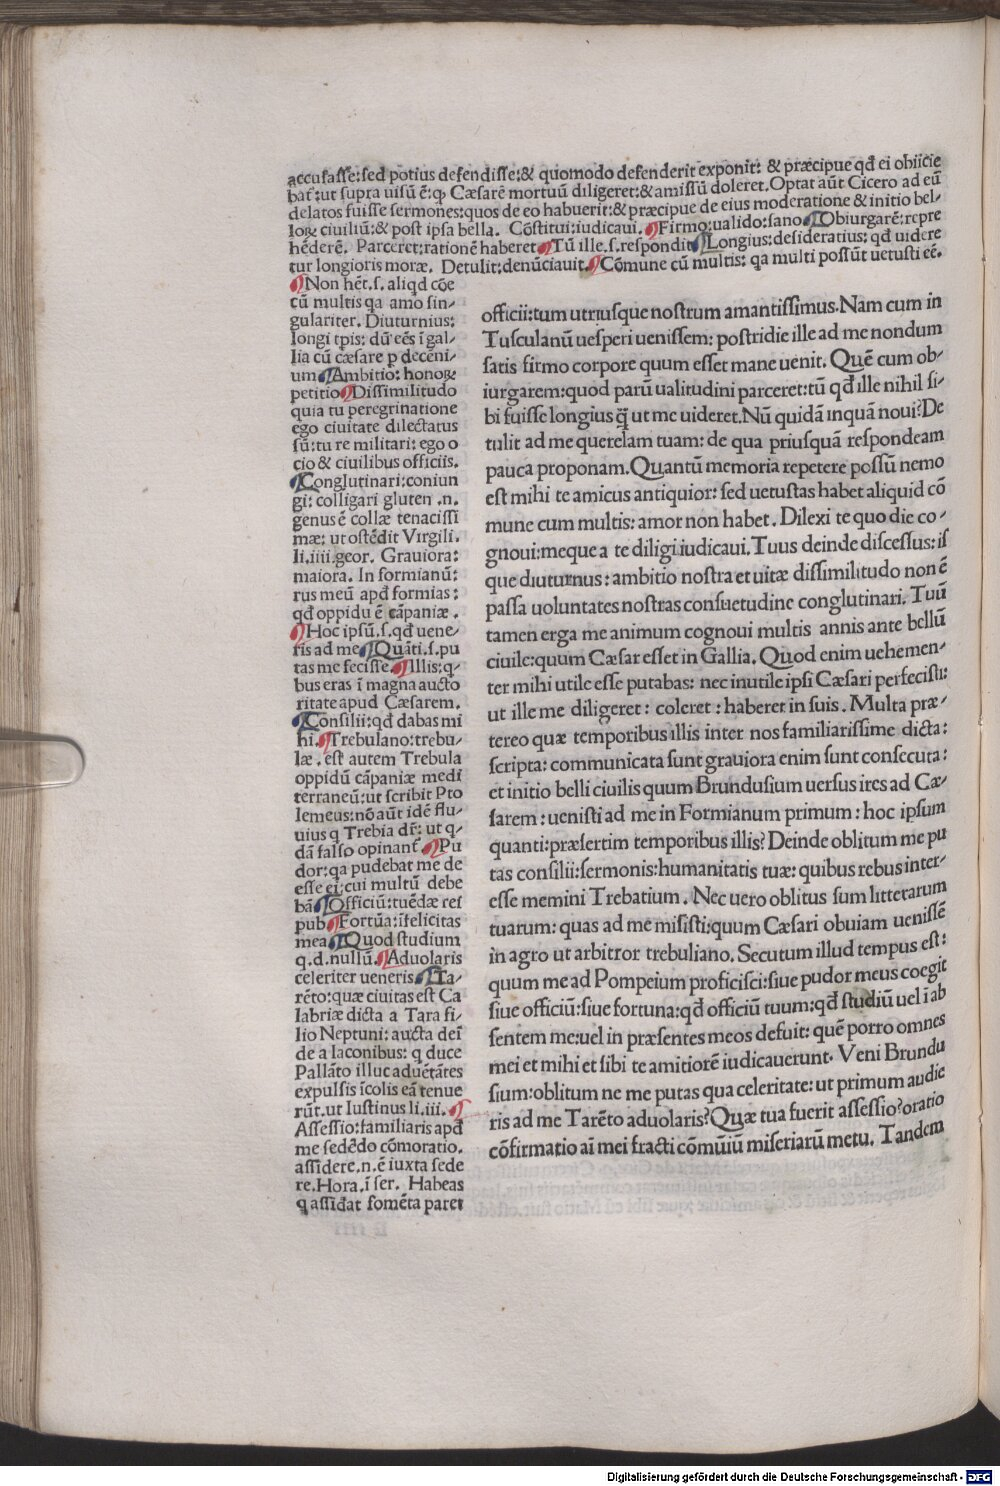 accusasse:sed potius defendisse:& quomodo defenderit exponit: & præcipue qđ ei obiicie
bat̃:ut supra uisũ ẽ:ꝙ Cæsarẽ mortuũ diligeret:& amissũ doleret.Optat aũt Cicero ad eũ
delatos fuisse sermones:quos de eo habuerit:& præcipue de eius moderatione & initio bel-
loꝝ ciuiliũ:& post ipsa bella. Cõstitui:iudicaui. ¶Firmo:ualido:sano ¶Obiurgarẽ:repre
hẽderẽ. Parceret:rationẽ haberet ¶Tũ ille.s.respondit ¶Longius:desideratius: qđ uidere
tur longioris moræ. Detulit:denũciauit.¶Cõmune cũ multis: qa multi possũt uetusti eẽ.
¶Non hẽt.s. aliqd cõe
cũ multis qa amo sin-
gulariter. Diuturnius:
longi tp̃is: dũ eẽs ĩ gal-
lia cũ cæsare p deceni-
um ¶Ambitio: honoꝝ
petitio ¶Dissimilitudo
quia tu peregrinatione
ego ciuitate dilectatus
sũ:tu re militari: ego o
cio & ciuilibus officiis.
¶Conglutinari:coniun
gi: colligari gluten .n.
genus ẽ collæ tenacissi
mæ: ut ostẽdit Virgili.
li.iiii.geor. Grauiora:
maiora. In formianũ:
rus meũ apđ formias:
qđ oppidu ẽ cãpaniæ .
¶Hoc ipsũ.s.qđ uene-
ris ad me ¶Quãti.s.pu
tas me fecisse. ¶Illis:q-
bus eras ĩ magna aucto
ritate apud Cæsarem.
¶Consilii:qđ dabas mi
hi. ¶Trebulano:trebu-
læ . est autem Trebula
oppidũ cãpaniæ medi
terraneũ:ut scribit Pto
lemeus:nõ aũt idẽ flu-
uius q Trebia dr̃: ut q-
dã falso opinant̃. ¶Pu
dor:qa pudebat me de
esse ei:cui multũ debe
bã ¶Officiũ:tuẽdæ rei
pub ¶Fortũa:ĩfelicitas
mea ¶Quod studium
q.d.nullũ. ¶Aduolaris
celeriter ueneris ¶Ta-
rẽto:quæ ciuitas est Ca
labriæ dicta a Tara fi-
lio Neptuni: aucta dei
de a laconibus: q duce
Pallãto illuc aduẽtãtes
expulsis ĩcolis eã tenue
rũt.ut Iustinus li.iii. ¶
Assessio:familiaris apđ
me sedẽdo cõmoratio.
assidere.n.ẽ iuxta sede
re.Hora.i ser. Habeas
q assideat fomẽta paret
officii:tum utriusque nostrum amantissimus.Nam cum in
Tusculanũ uesperi uenissem: postridie ille ad me nondum
satis firmo corpore quum esset mane uenit. Quẽ cum ob-
iurgarem:quod parũ ualitudini parceret:tũ qđ ille nihil si-
bi fuisse longius q̃ ut me uideret.Nũ quidã inquã noui?De
tulit ad me querelam tuam: de qua priusquã respondeam
pauca proponam.Quantũ memoria repetere possũ nemo
est mihi te amicus antiquior: sed uetustas habet aliquid cõ
mune cum multis: amor non habet . Dilexi te quo die co-
gnoui:meque a te diligi iudicaui.Tuus deinde discessus:is
que diuturnus: ambitio nostra et uitæ dissimilitudo non ẽ
passa uoluntates nostras consuetudine conglutinari. Tuũ
tamen erga me animum cognoui multis annis ante bellũ
ciuile:quum Cæsar esset in Gallia. Quod enim uehemen-
ter mihi utile esse putabas: nec inutile ipsi Cæsari perfecisti:
ut ille me diligeret: coleret: haberet in suis. Multa præ-
tereo quæ temporibus illis inter nos familiarissime dicta:
scripta: communicata sunt grauiora enim sunt consecuta:
et initio belli ciuilis quum Brundusium uersus ires ad Cæ-
sarem : uenisti ad me in Formianum primum : hoc ipsum
quanti:præsertim temporibus illis? Deinde oblitum me pu
tas consilii:sermonis:humanitatis tuæ: quibus rebus inter-
esse memini Trebatium. Nec uero oblitus sum litterarum
tuarum: quas ad me misisti:quum Cæsari obuiam uenissẽ
in agro ut arbitror trebuliano. Secutum illud tempus est:
quum me ad Pompeium proficisci:siue pudor meus coegit
siue officiũ:siue fortuna:qđ officiũ tuum:qđ studiũ uel ĩ ab
sentem me:uel in præsentes meos defuit: quẽ porro omnes
mei et mihi et sibi te amitiorẽ iudicauerunt. Veni Brundu
sium:oblitum ne me putas qua celeritate: ut primum audie
ris ad me Tarẽto aduolaris?Quæ tua fuerit assessio?oratio
cõfirmatio aĩ mei fracti cõmũiũ miseriarũ metu. Tandem
Digitalisierung gefördert durch die Deutsche Forschungsgemeinschaft - DFG